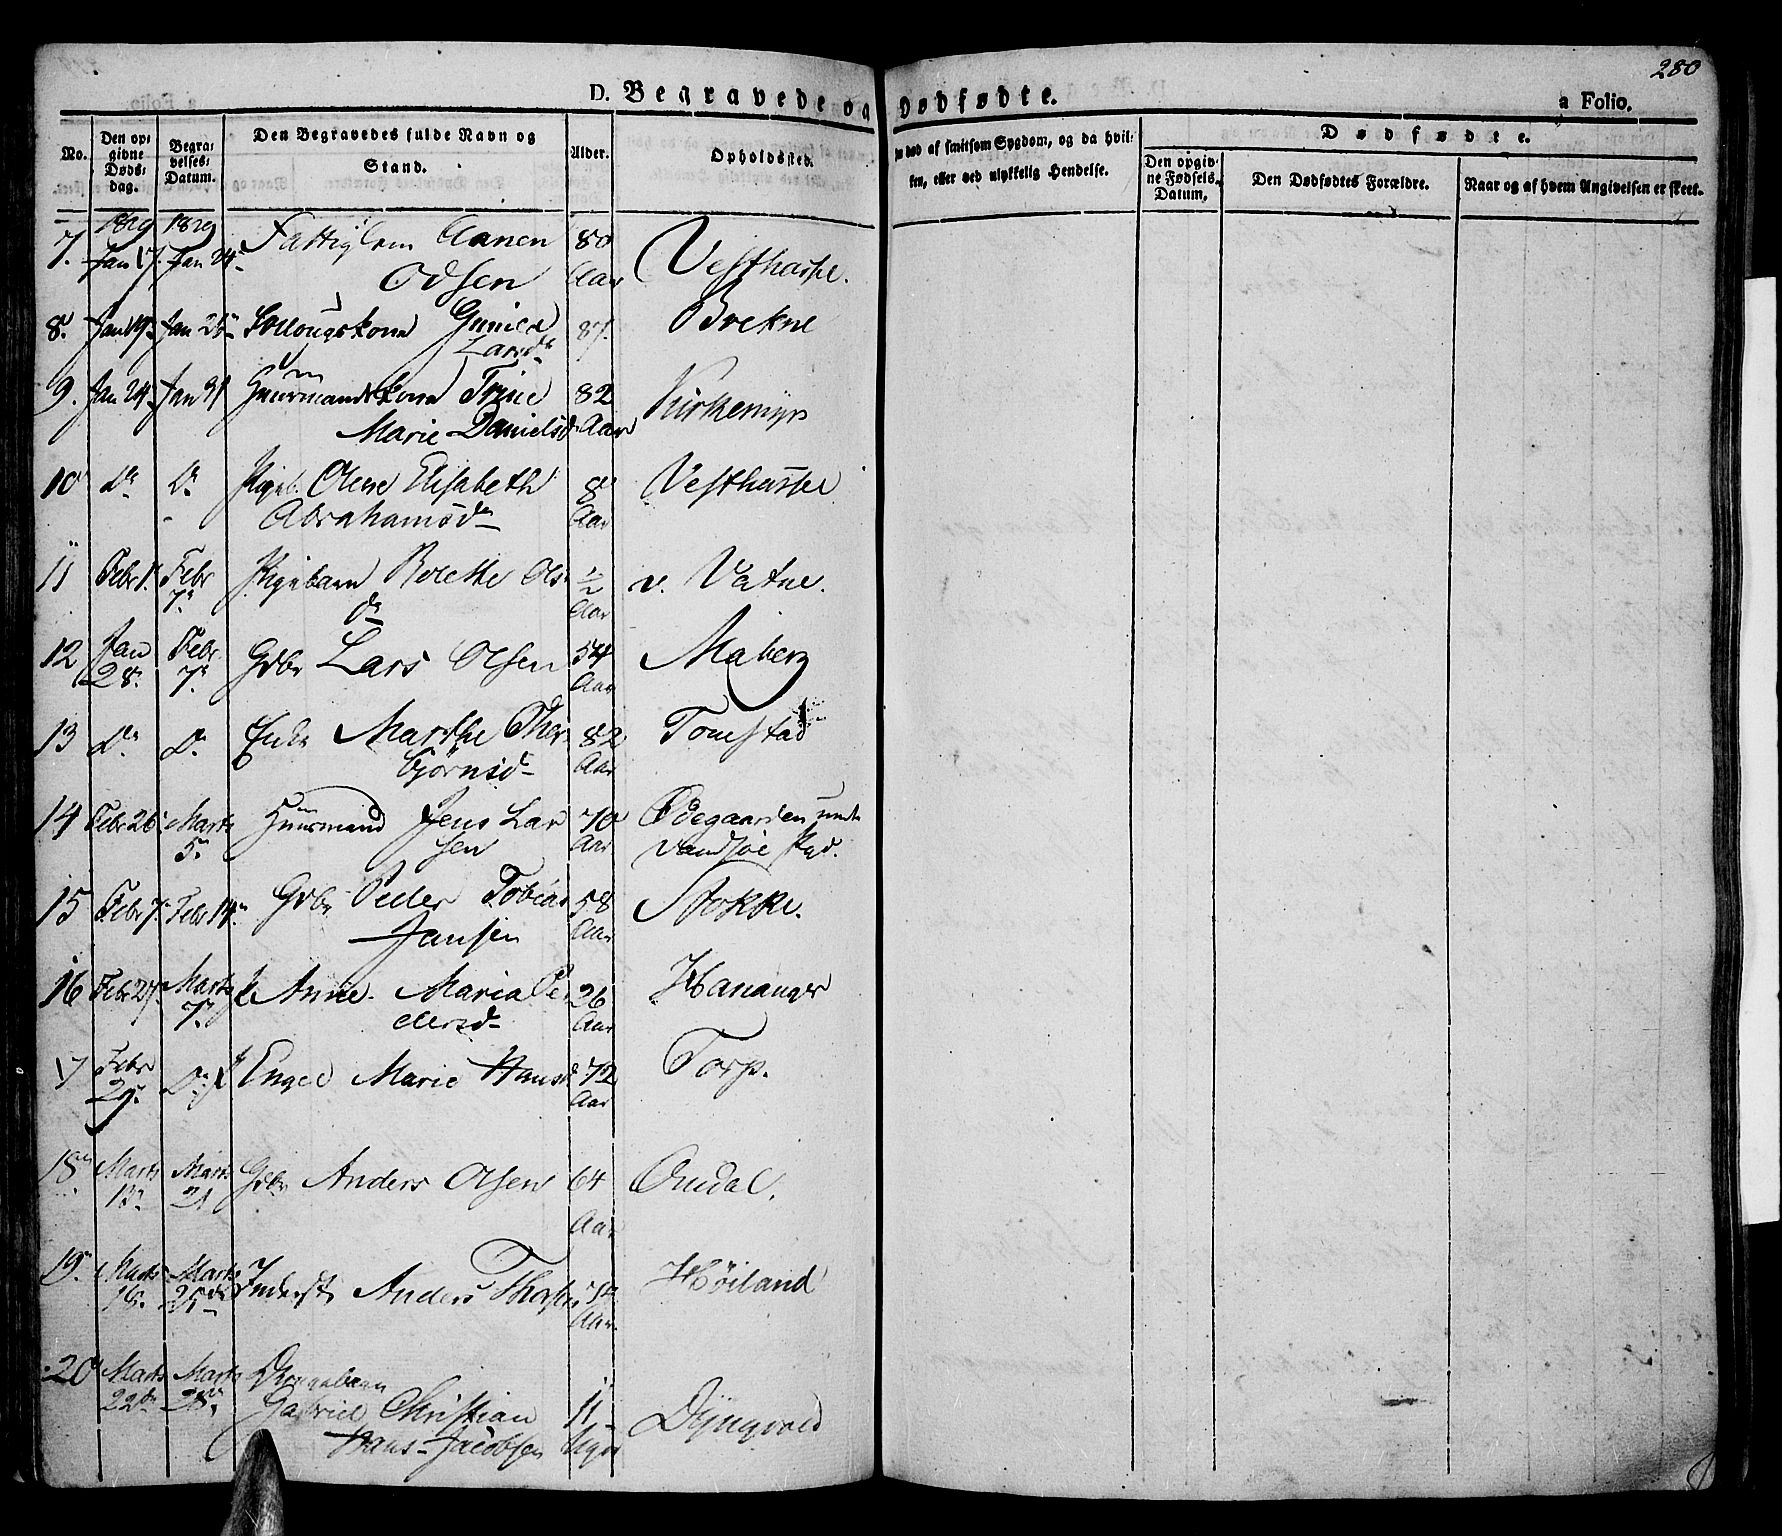 280
D. Begravede og Dødfødte.
a Folio.
No.
Den opgivne Døds-dag.
Begravelses-Datum.
Den Begravedes fulde Navn og Stand.
Alder.
Opholdssted.
død af smitsom Sygdom, og da hvilken, eller ved ulykkelig Hendelse.
Dødfødte.
Den opgivne Fødsels-Datum.
Den Dødfødtes Forældre.
Naar og af hvem Angivelsen er skeet.
1829 1829
7. Jan 17. Jan 24. Fattiglem Aanen 80 Vesthassel.
Odsen Aar
8. Jan 19. Jan 25. Gunild 87. Brekne
Larsd.
9. Jan 24. Jan 31 Huusmandskone Trine 82 Kirkemyr
Marie Danielsd. Aar
10 D. D. Pigeb. Olene Elisabeth 8 Vesthassel
Abrahamsd. Aar
11 Febr 1. Febr 7. Pigebarn Bolette Ols 1/2 v. Vatne.
d. Aar
12 Jan 28. Febr 7. Gdbr Lars Olsen 54 Maberg
Aar
13 D. D. Enke Marthe Thor 82 Tomstad
bjørnsd. Aar
14 Febr 26. Marts 5. Huusmand Jens Lar 70 Ødegaarden
sen Aar
15 Febr 7. Febr 14. Gdbr Peder Tobias 58 Stokke.
Jansen Aar
16 Febr 27. Marts 7. Anne Maria Pe 26 Hananger
dersd. Aar
17 Febr 29. D. Engel Marie Hansd 72 Torp.
Aar
18 Marts 13. Marts 21 Gdbr Anders Olsen 64 Omdal.
Aar
19. Marts 18. Marts 25. Inderst Anders Høiland
Aar.
20 Marts 22. Marts 28. Drengebarn
Gabriel Christian 11 Dyngvold
Hans Jacobsen Uger